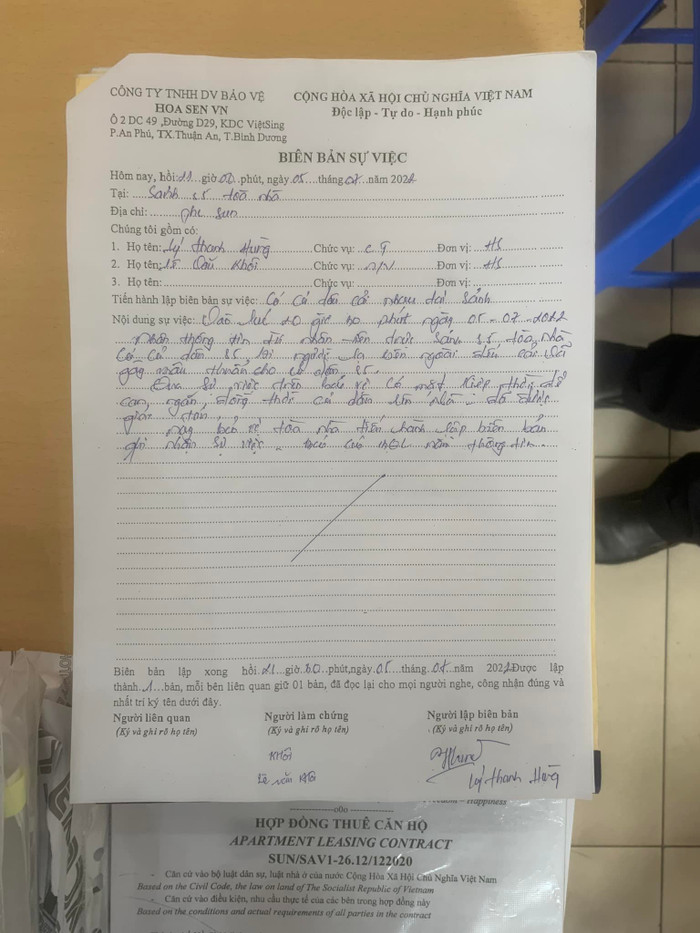 CÔNG TY TNHH DV BẢO VỆ
HOA SEN VN
Ô 2 DC 49 ,Đường D29, KDC ViệtSing
P.An Phú, TX.Thuận An, T.Bình Dương
CỘNG HÒA XÃ HỘI CHỦ NGHĨA VIỆT NAM
Độc lập - Tự do - Hạnh phúc
BIÊN BẢN SỰ VIỆC
Hôm nay, hồi: giờ phút, ngày 05 tháng 07 năm 2022
Tại: Sảnh S5 toà nhà
Địa chỉ: the sun
Chúng tôi gồm có:
1. Họ tên: Lý Thanh Hùng Chức vụ: CT Đơn vị: HS
2. Họ tên: Lê Văn Khôi Chức vụ: N/V Đơn vị: HS
3. Họ tên: Chức vụ: Đơn vị:
Tiến hành lập biên bản sự việc: Có cư dân cả nhau tại sảnh
Nội dung sự việc: Vào lúc 20 giờ 30 phút ngày 05-07-2022
Nhận thông tin từ nhân viên trực sảnh S5, tòa nhà
Có cư dân S5, người lạ bên ngoài đến
gây mâu thuẫn cho cư dân S5.
Qua sự việc trên bảo vệ có mặt kịp thời để
can, ngăn, đồng thời cư dân
giải
nay bảo vệ tòa nhà tiến hành lập biên bản
ghi nhận sự việc nắm thông tin.
Biên bản lập xong hồi: 21 giờ phút,ngày 05 tháng 07 năm 2022 Được lập
thành 1 bản, mỗi bên liên quan giữ 01 bản, đã đọc lại cho mọi người nghe, công nhận đúng và
nhất trí ký tên dưới đây.
Người liên quan
(Ký và ghi rõ họ tên)
Người làm chứng
(Ký và ghi rõ họ tên)
KHÔI
Lê văn Khôi
Người lập biên bản
(Ký và ghi rõ họ tên)
Lý Thanh Hùng
Happiness
---oOo---
HỢP ĐỒNG THUÊ CĂN HỘ
APARTMENT LEASING CONTRACT
SUN/SAV1-26.12/122020
- Căn cứ vào bộ luật dân sự, luật nhà ở của nước Cộng Hòa Xã Hội Chủ Nghĩa Việt Nam
Based on the Civil Code, the law on land of The Socialist Republic of Vietnam
- Căn cứ vào điều kiện, nhu cầu thực tế của các bên trong hợp đồng này
Based on the conditions and actual requirements of all parties in the contract